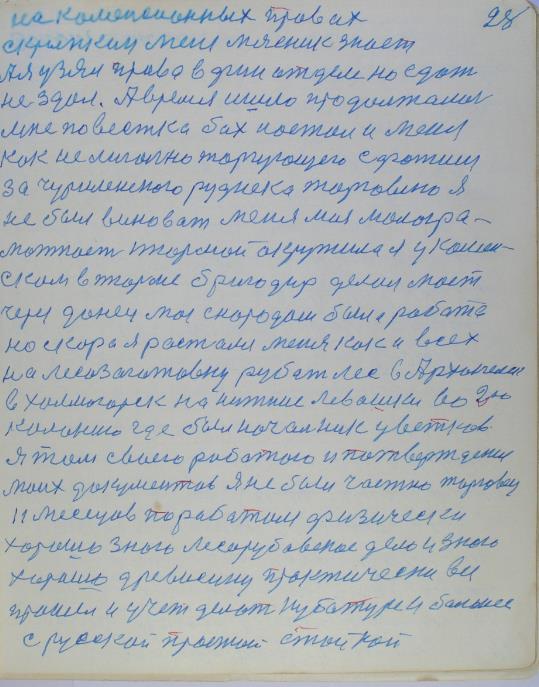 28
на комепсионных правах
меня мясник знает
А я узял права в фин отдел но сдат
не здал. А время шло продолжалог
мне повестка бах поетом и меня
как не лигално торгующего
за рудника торговлю Я
не был виноват меня моя малогра-
мотност тюрмой окружила я у камен-
ском в тюрме бригодир делал мост
чериз донец моя была работа
но скора я растали меня как и всех
на лесозаготовку рубат лес в Архангелск
в Холмогорск на нижние левашки во 2ю
колонию где был началник цветков
я там своего работаю и потверждения
моих документов я не был частно торговец
11 месецов поработал физически
хорошо знаю лесорубавское дело и знаю
хорошо древисину практически вси
прошел и учет делат кубатуре и балансе
с русской простой стойкой